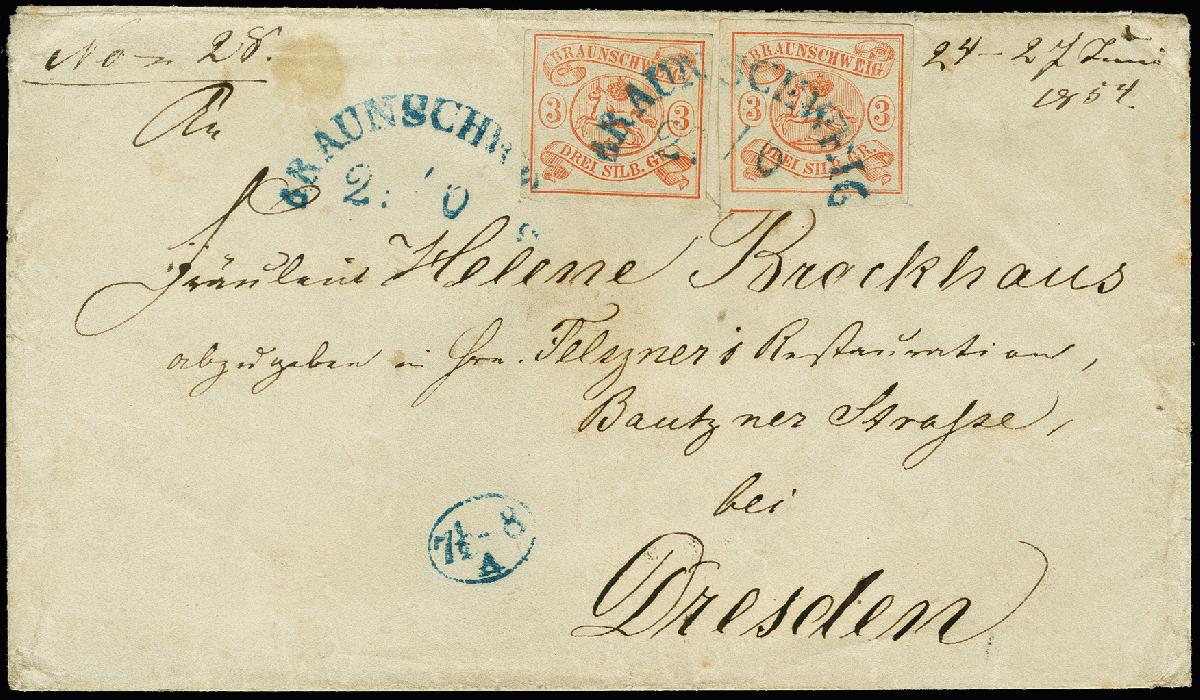 No 28.
BRAUNSCHWEIG
3 3
DREI SILB. GR.
BRAUNSCHWEIG
3 3
DREI SILB. GR.
24 - 27 Juni
1854.
An
BRAUNSCHWE
BRAUNSCHWEIG
Fräulein Helene Brockhaus
abzugeben in Hrn. Felszner's Restauration,
Bautzner Strasse,
bei
7½ - 8
A
Dresden